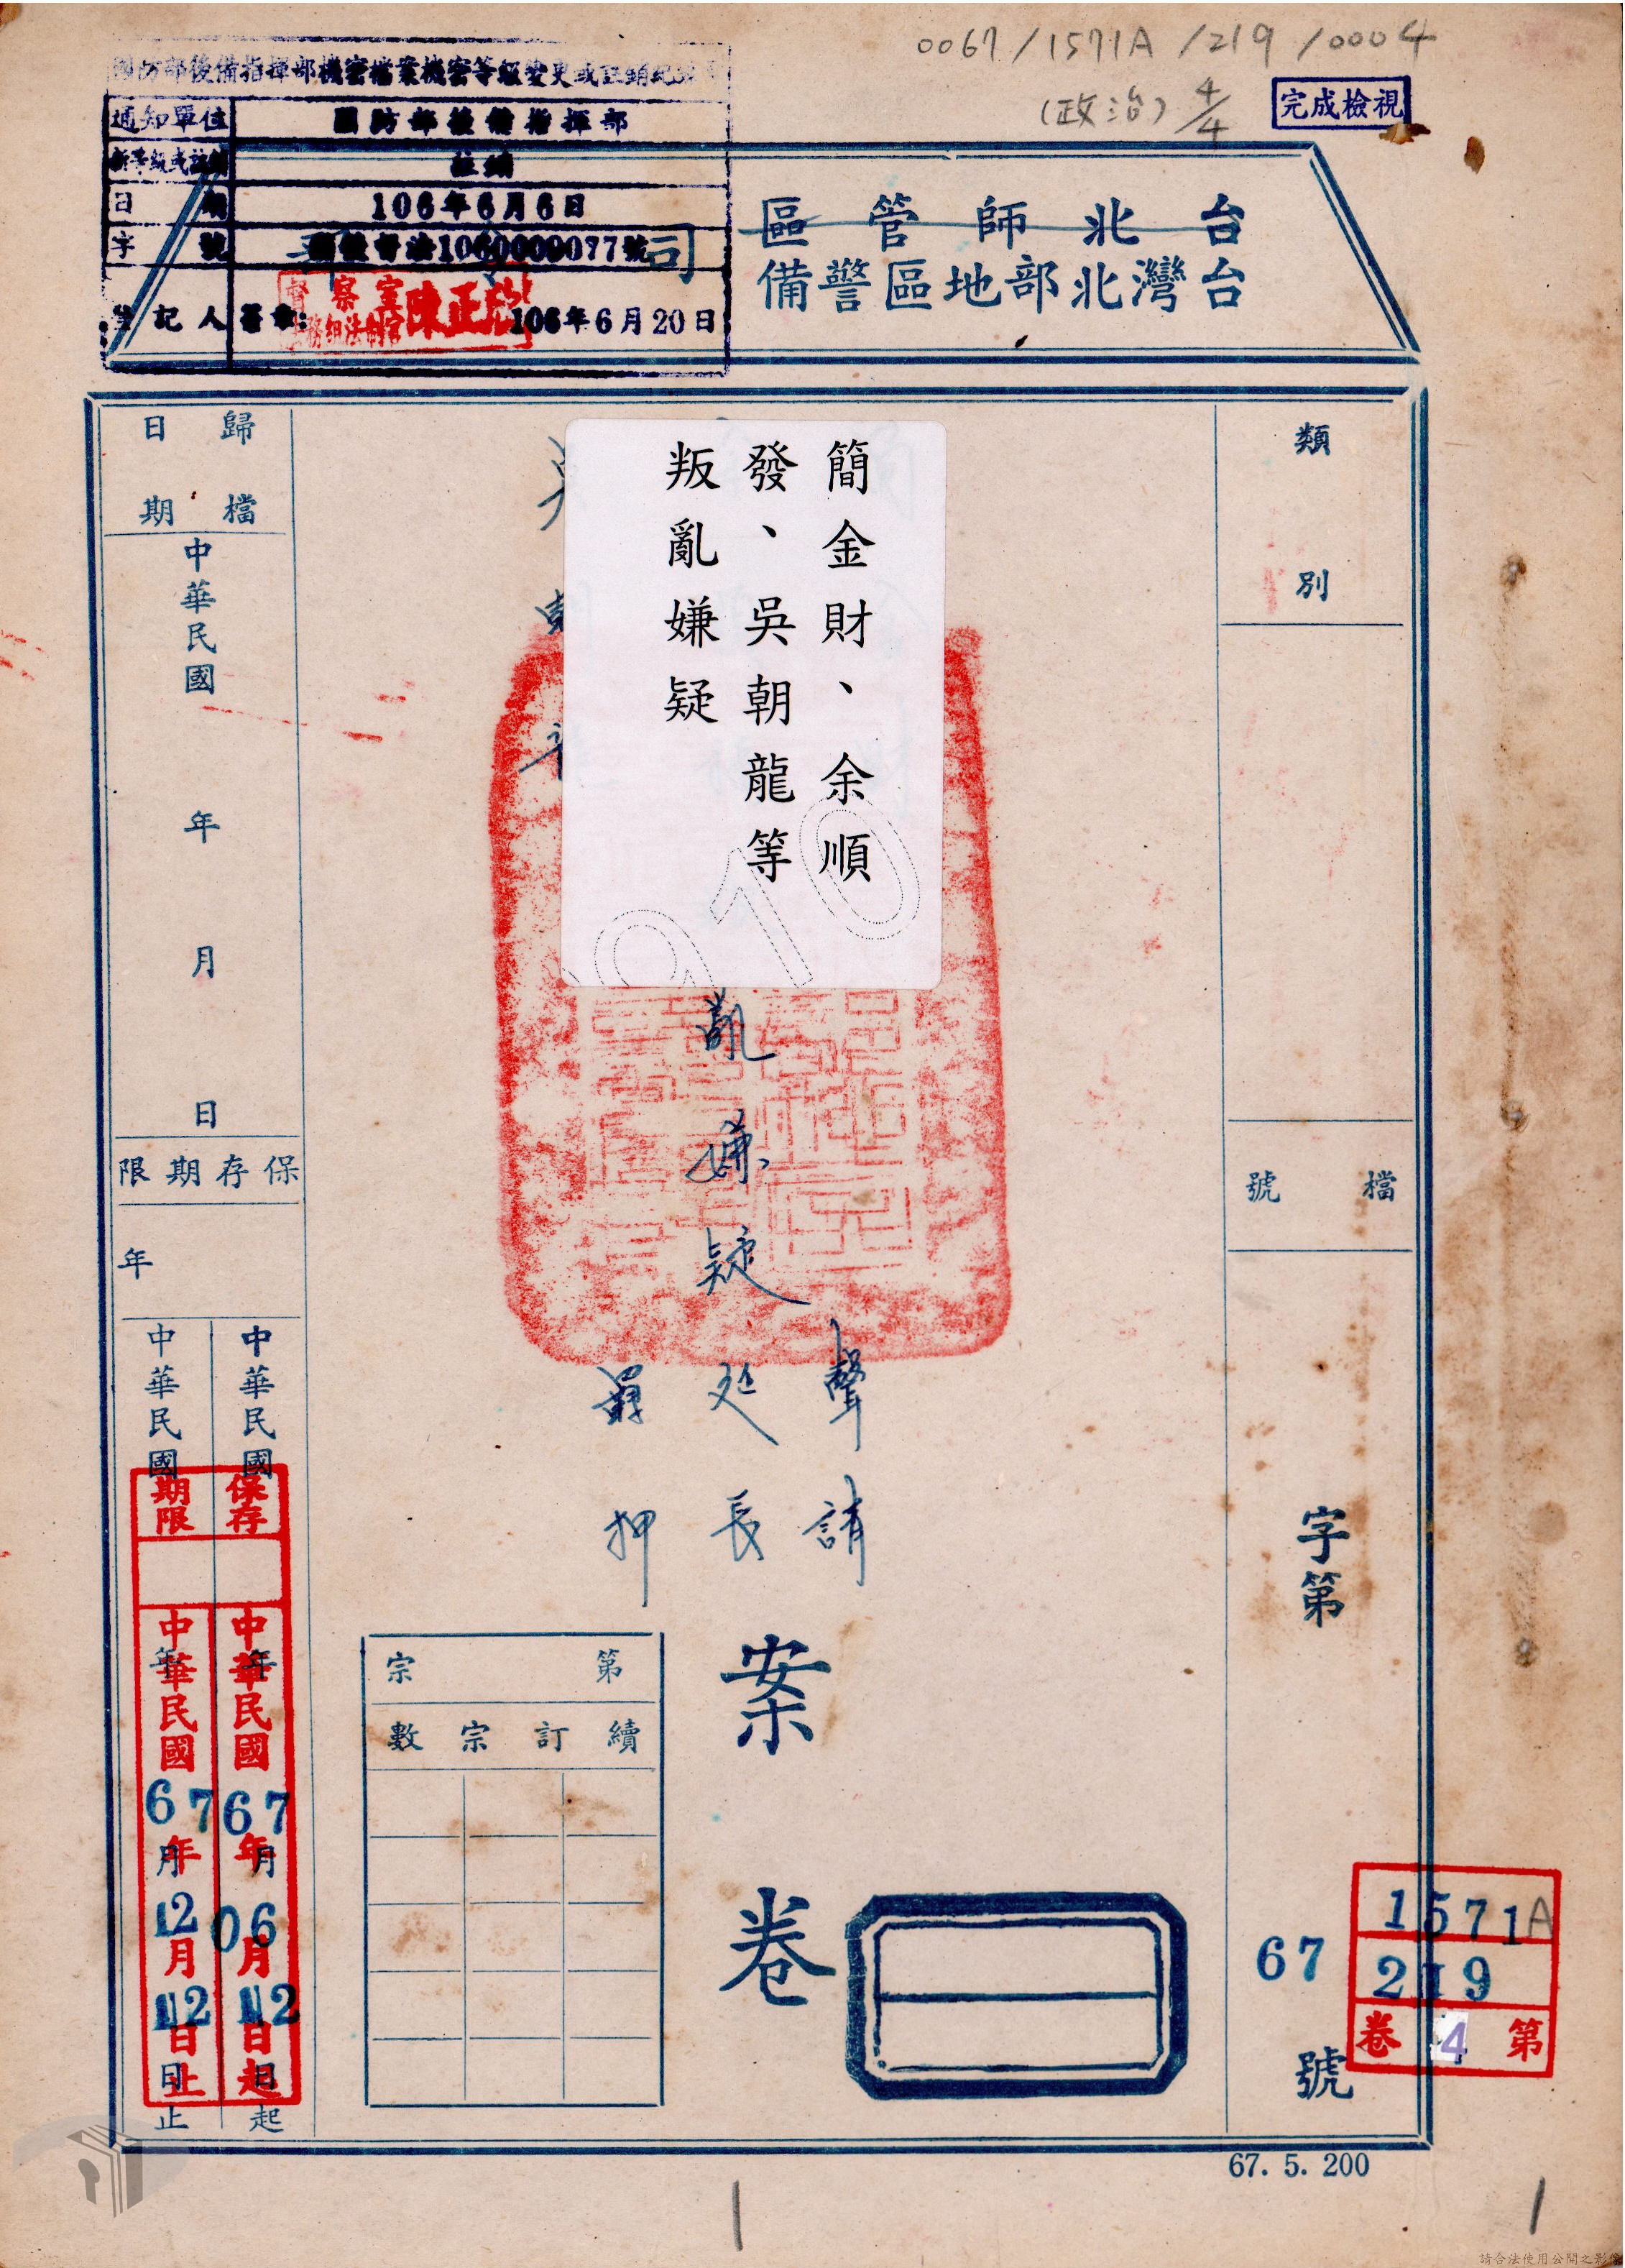 0067/1571A/219/0004
(政治) 4/4
完成檢視
國防部後備指揮部機密檔案機密等級變更或註銷紀錄
通知單位 國防部後備指揮部
新等級或註銷 註銷
日期 106年6月6日
字號
登記人 簽章: 106年6月20日
督察室
陳正
台北師管區
台灣北部地區警備
司
類別
檔號
字第
67
號
1571A
219
第4卷
簡金財、余順
發、吳朝龍等
叛亂嫌疑
亂嫌疑
聲請
延長
羈押
案卷
第宗
續訂宗數
歸檔日期
中華民國
年
月
日
保存期限
年
中華民國 年 月 日起
中華民國 年 月 日止
保存期限
中華民國67年06月12日起
中華民國67年12月12日止
67. 5. 200
請合法使用公開之影像